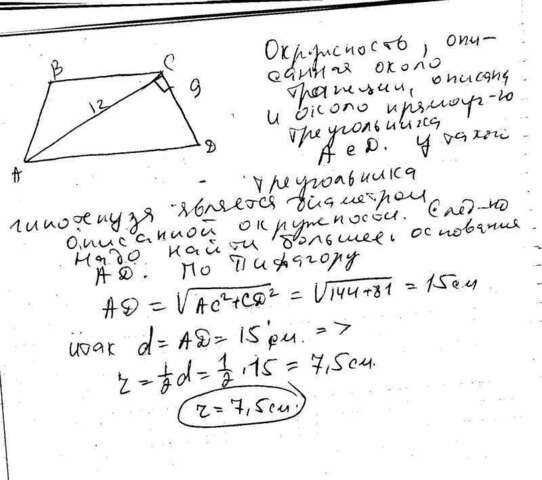 B
C
9
12
A
D
Окружность, опи-
санная около
трапеции, описана
и около прямоуг-го
треугольника
ACD. У такого
треугольника
гипотенуза является диаметром
описанной окружности. След-но
надо найти большее основание
AD. По Пифагору
AD = √AC²+CD² = √144+81 = 15 см
итак d = AD = 15 см. =>
r = 1/2 d = 1/2 · 15 = 7,5 см.
r = 7,5 см.